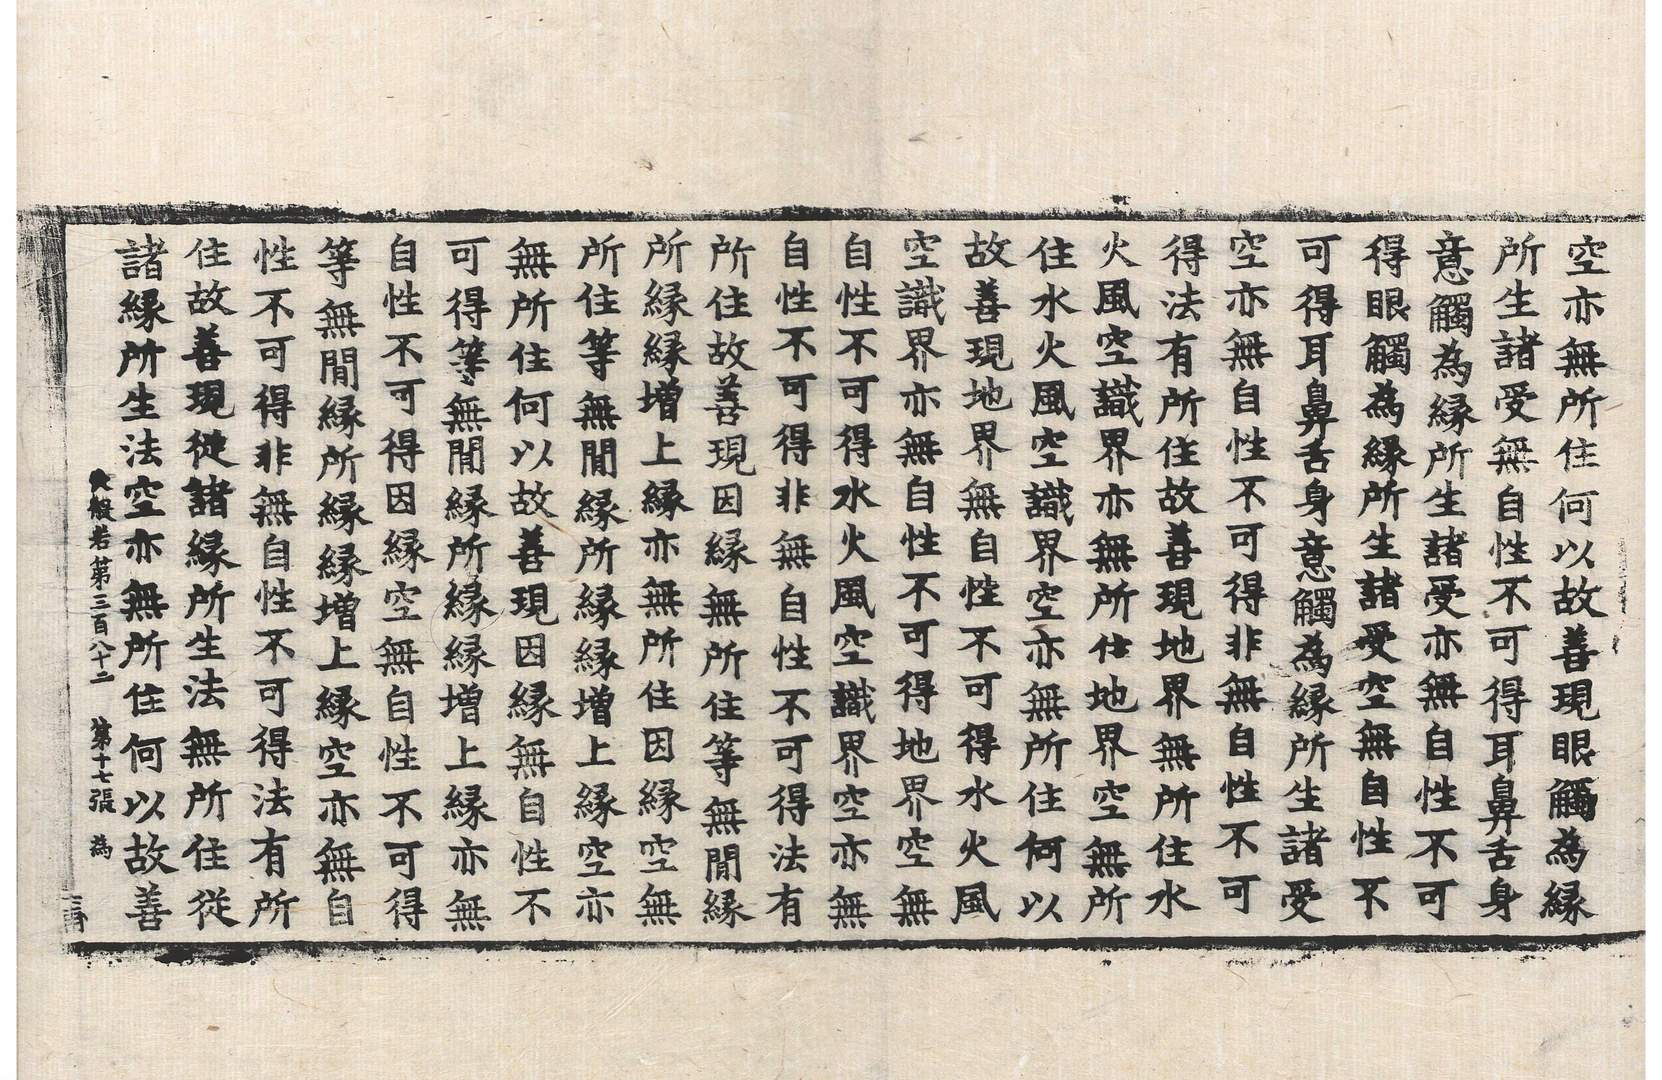 空亦無所住何以故善現眼觸為縁
所生諸受無自性不可得耳鼻舌身
意觸為縁所生諸受亦無自性不可
得眼觸為縁所生諸受空無自性不
可得耳鼻舌身意觸為縁所生諸受
空亦無自性不可得非無自性不可
得法有所住故善現地界無所住水
火風空識界亦無所住地界空無所
住水火風空識界空亦無所住何以
故善現地界無自性不可得水火風
空識界亦無自性不可得地界空無
自性不可得水火風空識界空亦無
自性不可得非無自性不可得法有
所住故善現因縁無所住等無閒縁
所縁縁增上縁亦無所住因縁空無
所住等無閒縁所縁縁增上縁空亦
無所住何以故善現因縁無自性不
可得等無閒縁所縁縁增上縁亦無
自性不可得因縁空無自性不可得
等無閒縁所縁縁增上縁空亦無自
性不可得非無自性不可得法有所
住故善現從諸縁所生法無所住從
諸縁所生法空亦無所住何以故善
大般若第三百八十二 第十七張 為